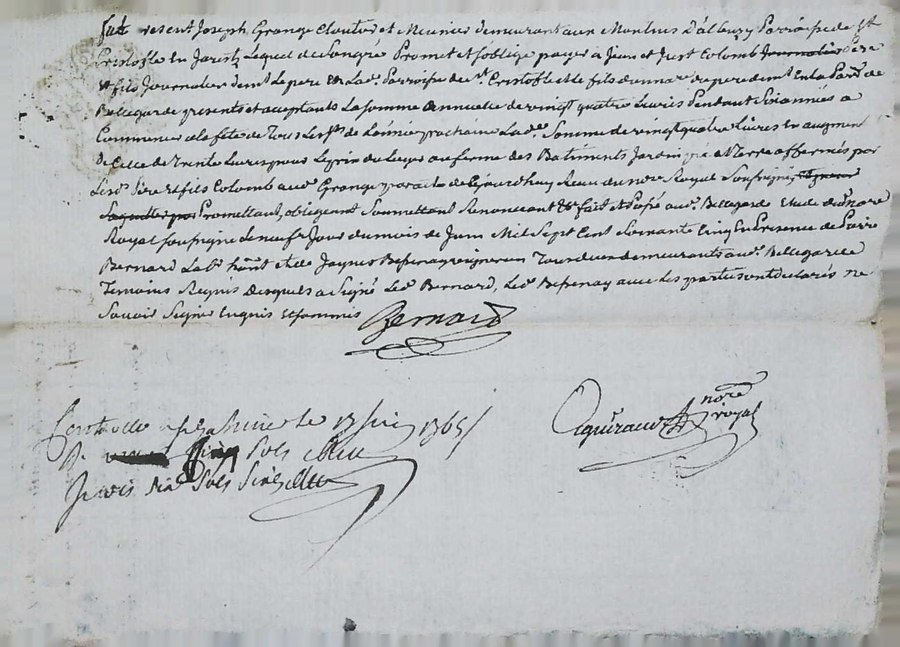 fut present Joseph Grange Cloutier et Meunier demeurant aux Moulins D'albuzy Parroisse de St
Cristofle en Jarestz Lequel de Son gré Promet et soblige payer à Jean et Just Colomb Journalier Pere
et fils Journaliers demt Le pere En Lade. Parroisse de St. Cristofle et le fils
Bellegarde presents et acceptants La somme Annuelle de vingt quatre Livres Pendant Six années a
Commencer a la fete de Tous Les Sts de Lannée prochaine Lade. Somme de vingt quatre Livres En augmen
de Celle de trente Livres pour Le prix du Leurs au ferme des Batiments Jardin pré et Terre affermés par
Lesd. Pere et fils Colomb aud. Grange par acte de Cejourdhuy Reçu du nore. Royal Soussigné
Promettant, obligeant Soumettant Renonceant &c fait et Passé aud. Bellegarde Etude du Nore
Royal soussigné Le neufe Jour du mois de Juin Mil Sept Cent Soixante Cinq En Presence de Pierre
Bernard Labr. hannt et de Jaques Bessenay vigneron Tous deux demeurants aud. Bellegarde
Temoins Requis Desquels a Signé Led. Bernard, Led. Bessenay avec Les parties ont declarés ne
Savoir Signer Enquis et sommés
Bernard
Controllé a le 13 juin 1765
R. Sols
Sols
nore
royal